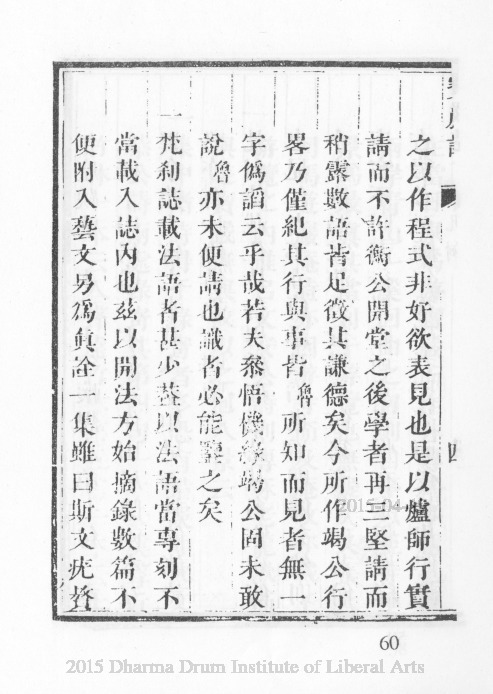 之以作程式非好欲表見也是以爐師行實
請而不許衡公開堂之後學者再三堅請而
稍露數語皆足徵其謙德矣今所作竭公行
畧乃僅紀其行與事皆魯所知而見者無一
字僞謟云乎哉若夫叅悟機緣竭公固未敢
說魯亦未便請也識者必能鑒之矣
一梵刹誌載法語者甚少葢以法語當專刻不
當載入誌內也茲以開法方始摘錄數篇不
便附入藝文另爲眞詮一集雖曰斯文疣贅
四
60
2015-04-
2015 Dharma Drum Institute of Liberal Arts